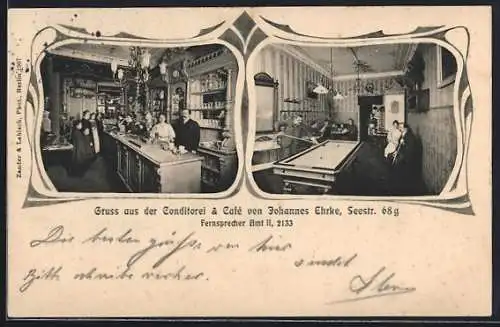 Zander & Labisch, Phot., Berlin 1907
Gruss aus der Conditorei & Café von Johannes Ehrke, Seestr. 68g
Fernsprecher Amt II, 2133
Die besten Grüße von hier
sendet
Bitte schreibe vorher.